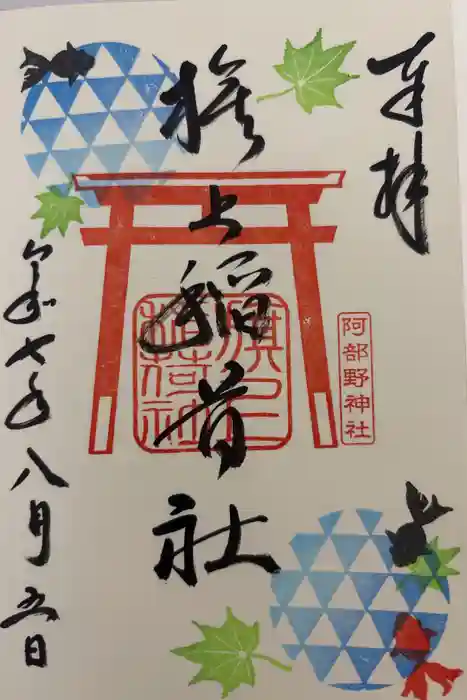 奉拝
旗上稲荷社
旗上
稲荷社
阿部野神社
令和七年八月五日